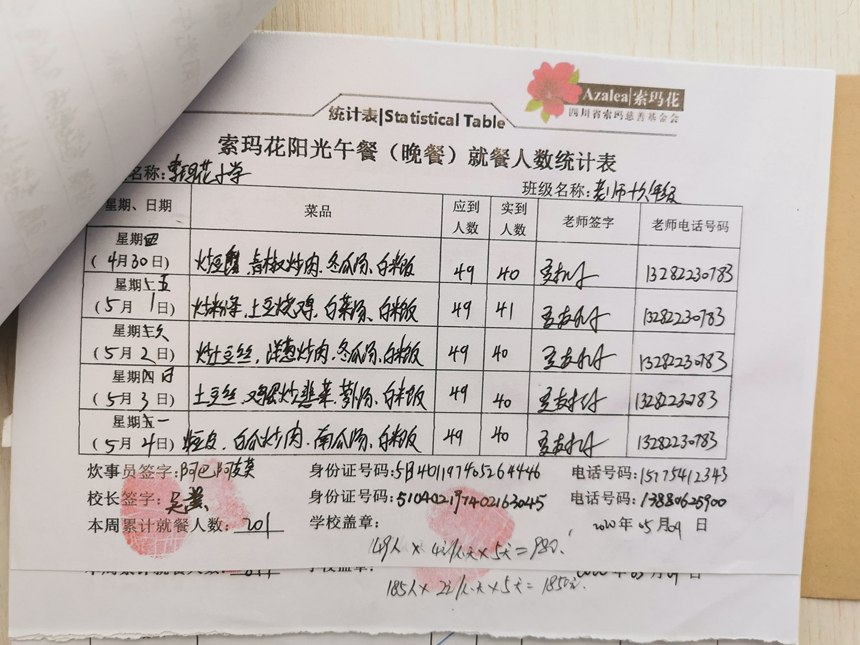 Azalea|索玛花
四川省索玛慈善基金会
统计表|Statistical Table
索玛花阳光午餐（晚餐）就餐人数统计表
名称:索玛花小学
班级名称:老师 六年级
星期、日期 菜品 应到人数 实到人数 老师签字 老师电话号码
星期四
(4月30日) 炒豆 、青椒炒肉、冬瓜汤、白米饭 49 40 13282230783
星期五
(5月1日) 炒粉条、土豆烧鸡、白菜汤、白米饭 49 41 13282230783
星期六
(5月2日) 炒土豆丝、洋葱炒肉、冬瓜汤、白米饭 49 40 13282230783
星期四日
(5月3日) 土豆丝、鸡蛋炒韭菜、 汤、白米饭 49 40 13282230783
星期五一
(5月4日) 豆皮、白瓜炒肉、南瓜汤、白米饭 49 40 13282230783
炊事员签字:阿巴阿 身份证号码: 电话号码:15775412343
校长签字: 身份证号码:510402197402163045 电话号码:13880625900
本周累计就餐人数:201 学校盖章: 2020年05月09日
49人×4元/人天×5天=980.
本周累计就餐人数: 学校盖章:
185人×2元/人天×5天=1850元.